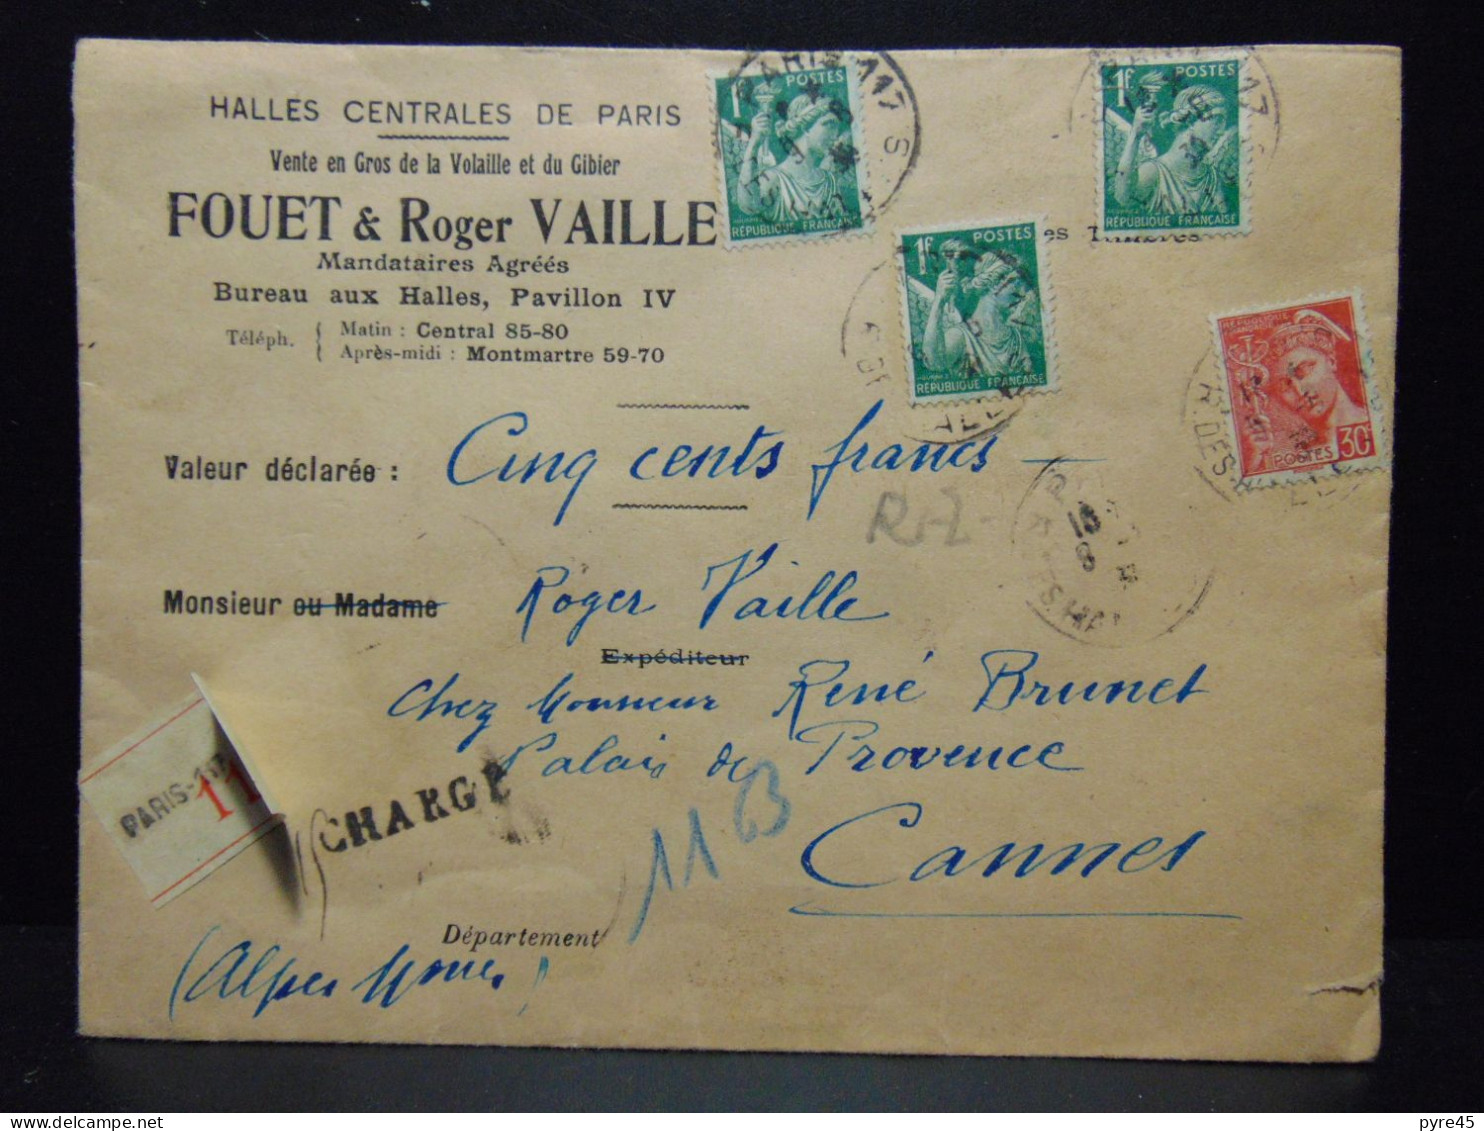 HALLES CENTRALES DE PARIS
Vente en Gros de la Volaille et du Gibier
FOUET & Roger VAILLE
Mandataires Agréés
Bureau aux Halles, Pavillon IV
Téléph. { Matin : Central 85-80
Après-midi : Montmartre 59-70
1F POSTES
RÉPUBLIQUE FRANÇAISE
PARIS 117
1F POSTES
RÉPUBLIQUE FRANÇAISE
1F POSTES
RÉPUBLIQUE FRANÇAISE
es Timbres
REPUBLIQUE FRANÇAISE
POSTES 30c
R. DES
Valeur déclarée : Cinq cents francs
Monsieur ou Madame Roger Vaille
Expéditeur
Chez Monsieur René Brunet
Palais de Provence
PARIS-1
11
CHARGE
11 B
Cannes
Département
(Alpes Mmes)
pyre45